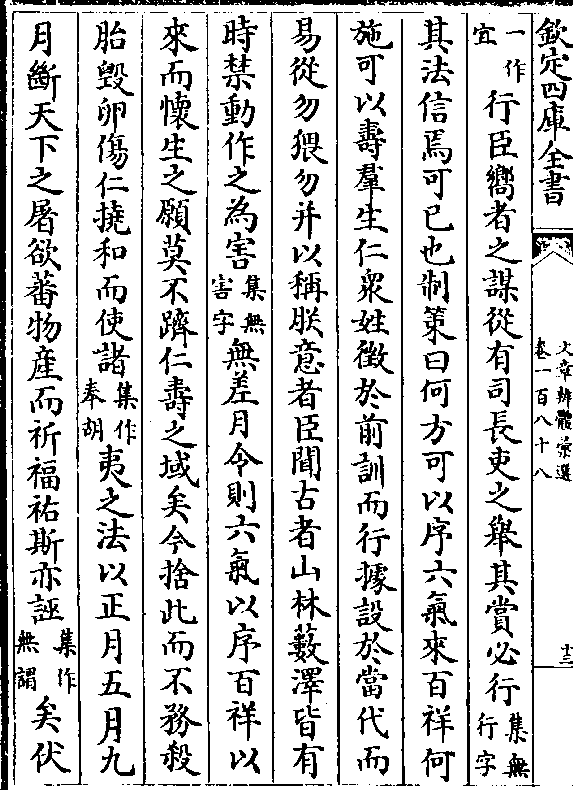 欽定四庫全書
文章辨體彙選
卷一百八十八
十三
一作宜行臣嚮者之謀從有司長吏之舉其賞必行集無行字
其法信焉可已也制策曰何方可以序六氣來百祥何
施可以壽羣生仁衆姓徵於前訓而行據設於當代而
易從勿猥勿并以稱朕意者臣聞古者山林藪澤皆有
時禁動作之為害集無害字無差月令則六氣以序百祥以
來而懷生之願莫不躋仁壽之域矣今捨此而不務殺
胎毀卵傷仁撓和而使諸集作奉胡夷之法以正月五月九
月斷天下之屠欲蕃物產而祈福祐斯亦誣集作無謂矣伏